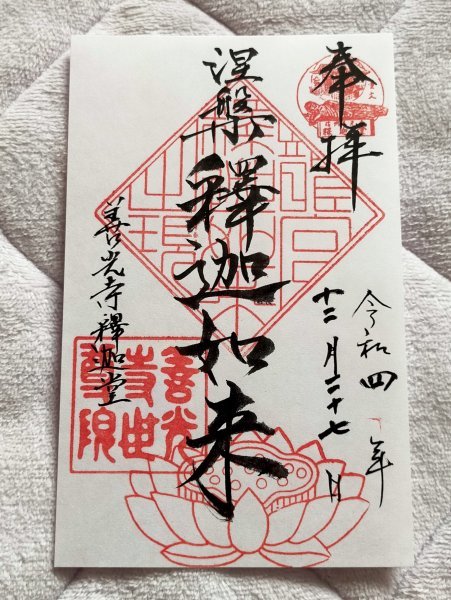 奉拝
令和四年
十二月二十七日
涅槃釋迦如来
善光寺釋迦堂
善光
寺世
尊院